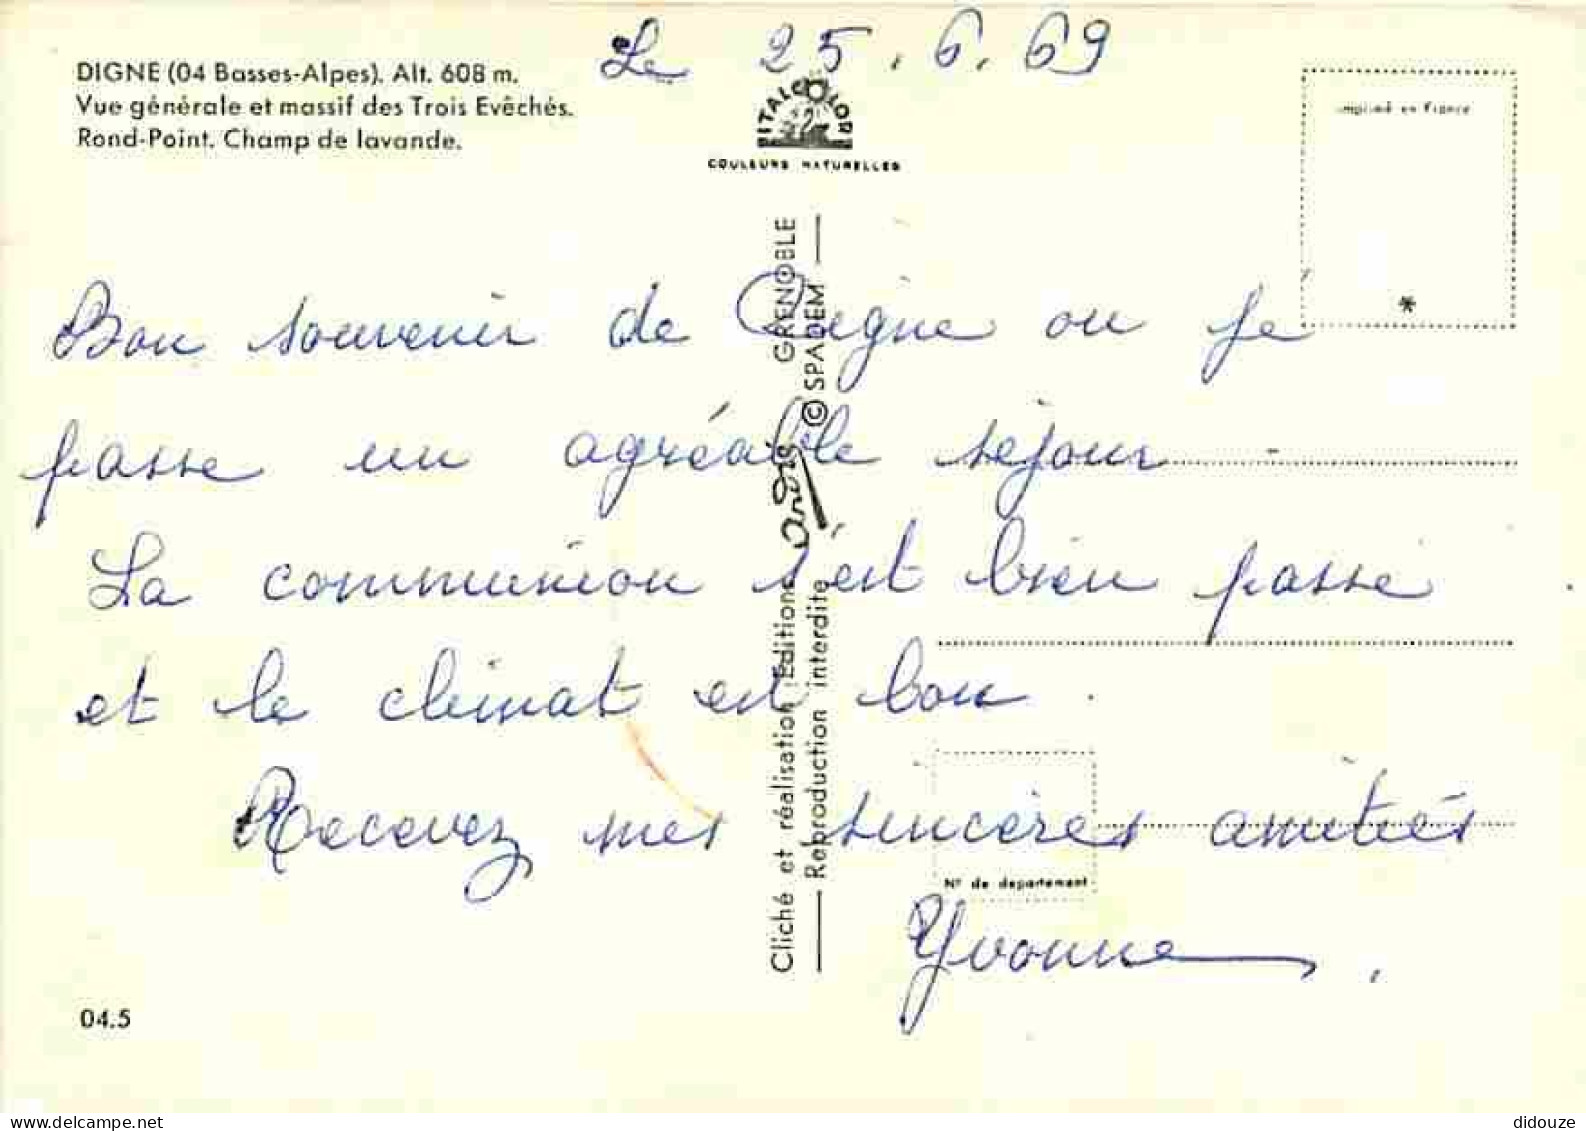 Le 25.6.69
DIGNE (04 Basses-Alpes). Alt. 608 m.
Vue générale et massif des Trois Evêchés.
Rond-Point. Champ de lavande.
ITALCOLOR
COULEURS NATURELLES
Imprimé en France
*
Bon souvenir de Digne ou je
passe un agréable séjour -
La communion s'est bien passé
et le climat est bon .
Recevez mes sincères amitiés
Yvonne .
Cliché et réalisation Editions André GRENOBLE
Reproduction interdite © SPADEM
N° de département
04.5
www.delcampe.net
didouze